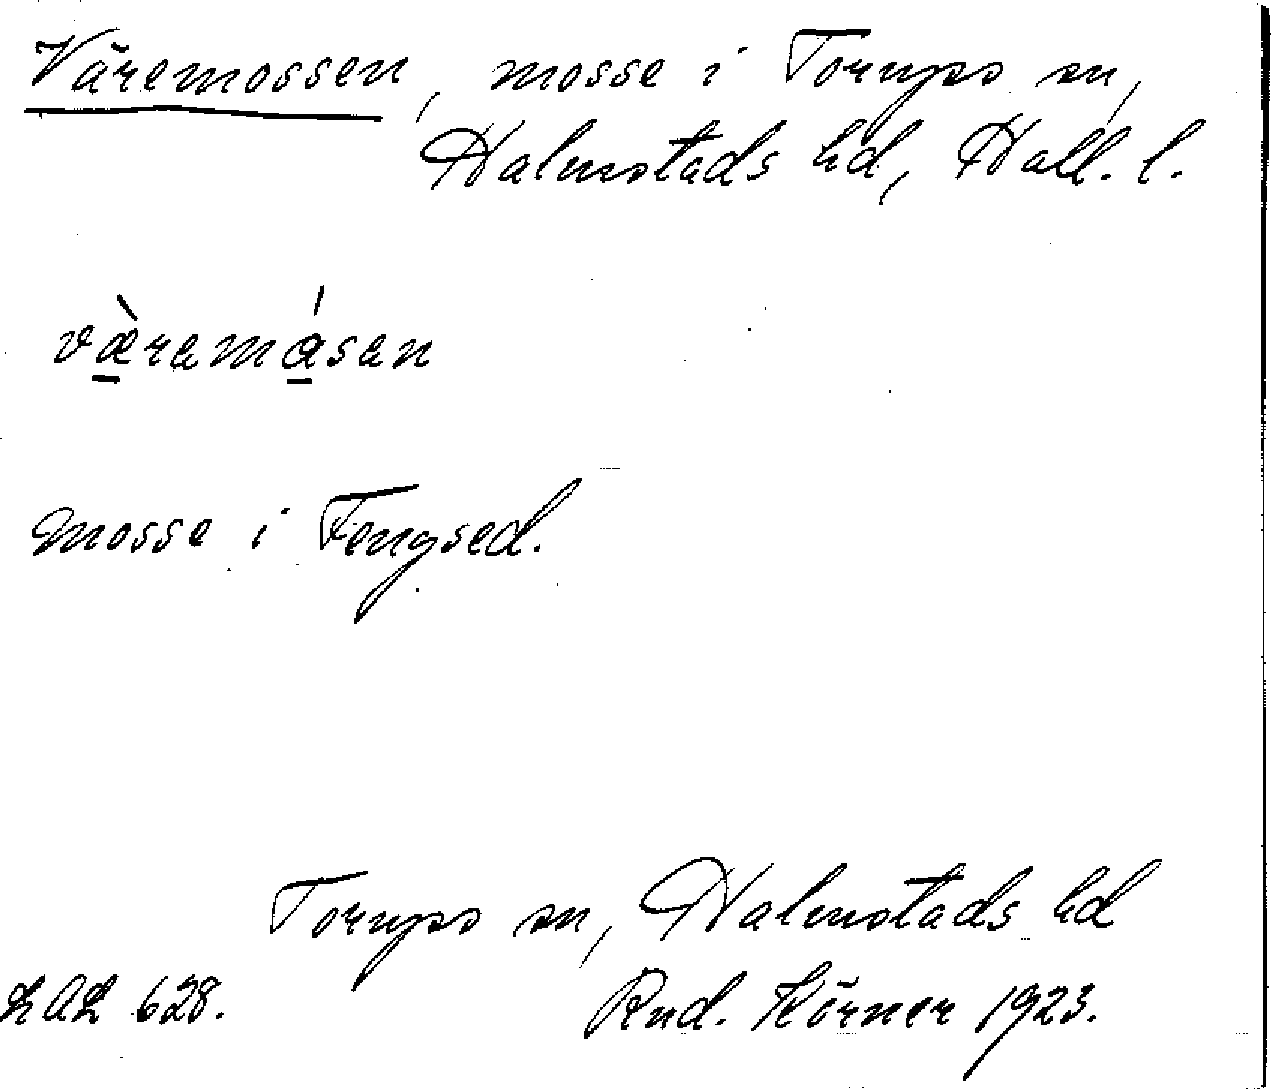 Väremossen, mosse i Torups sn,
Halmstads hd, Hall. l.
væ̀ramǻsan
mosse i Fengsed.
Torups sn, Halmstads hd
LAL 628. Rud. Körner 1923.